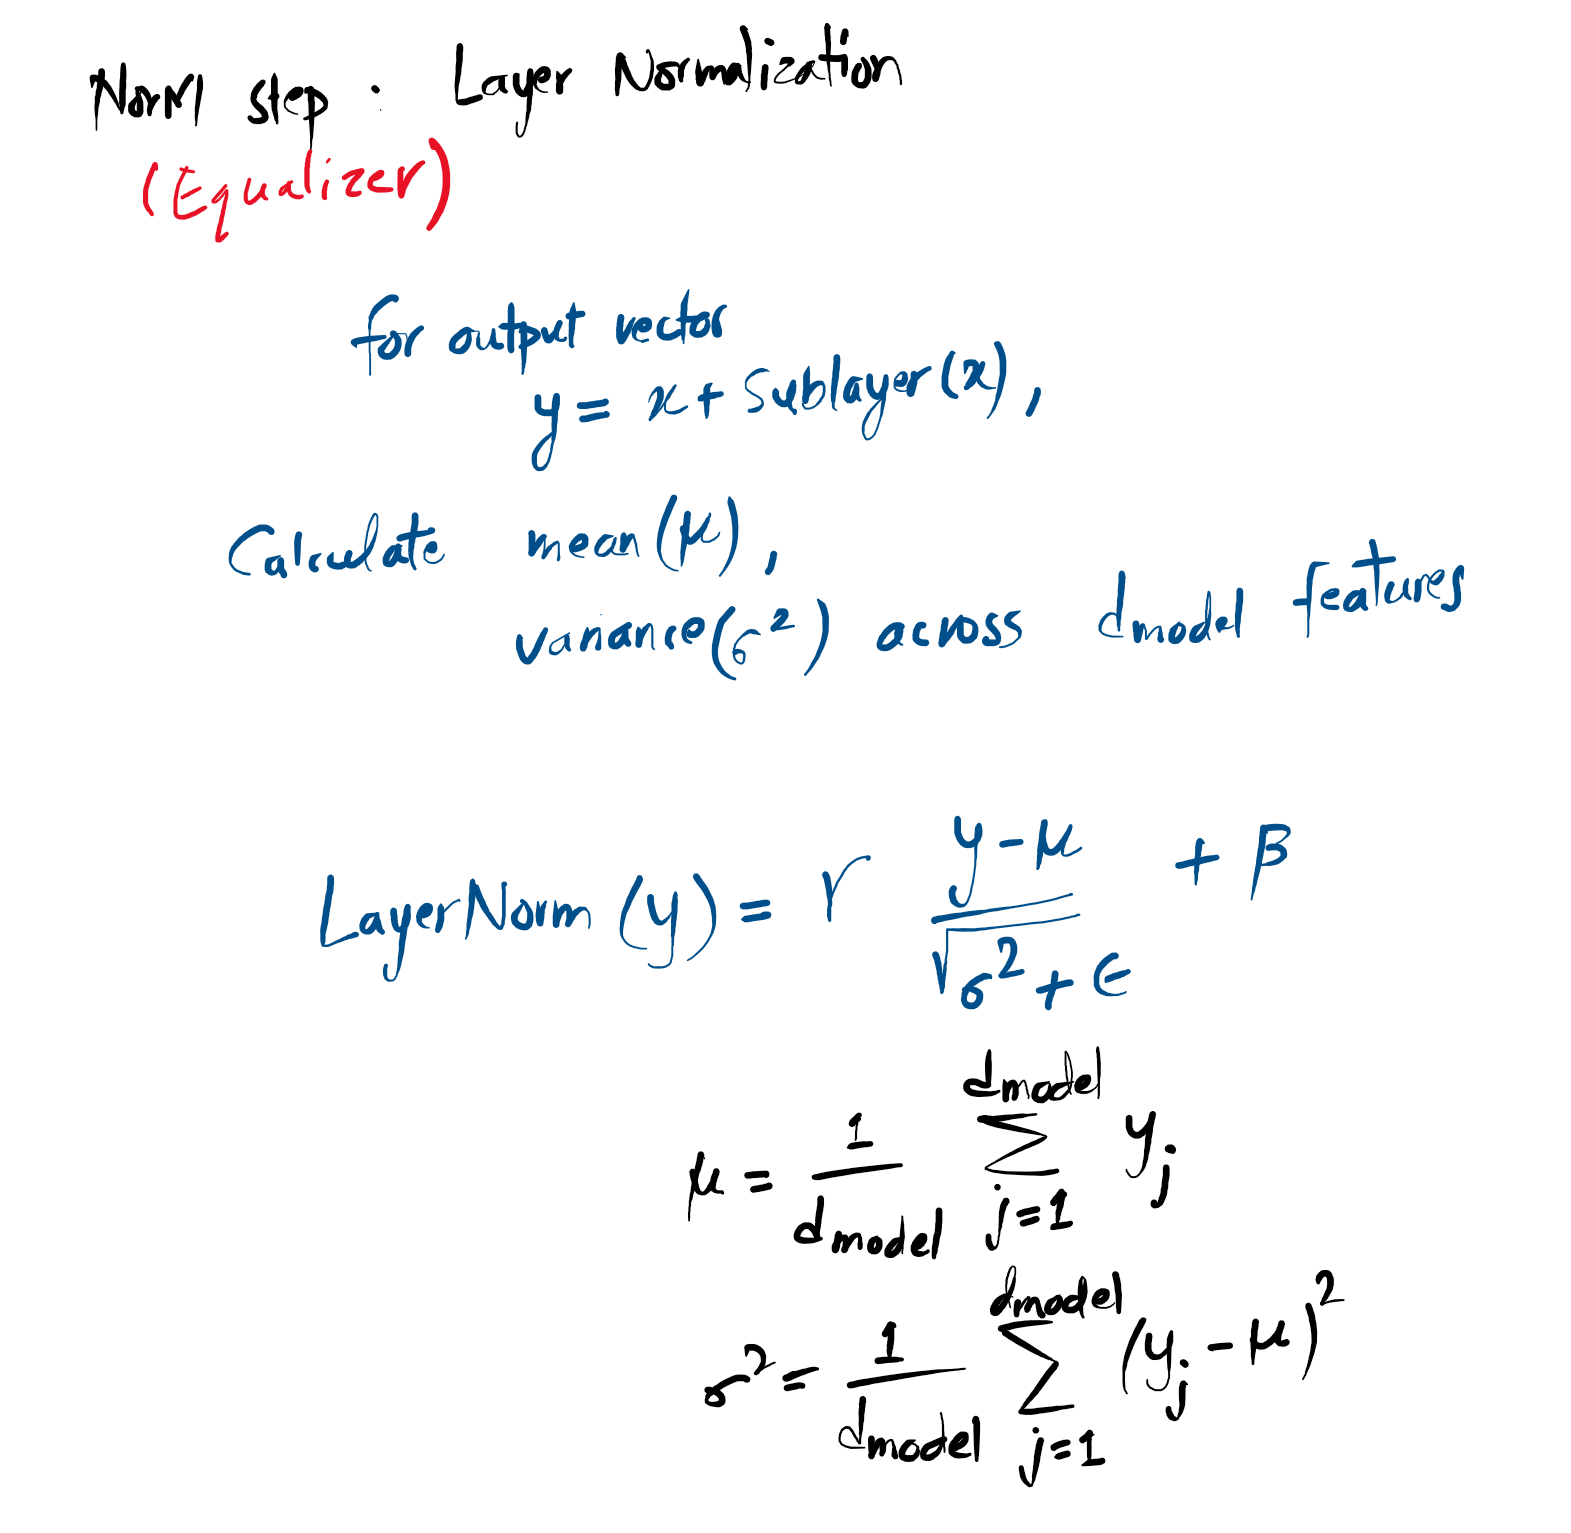 Norm step : Layer Normalization
(Equalizer)
for output vector
y = x + Sublayer(x),
Calculate mean (μ),
variance(σ²) across dmodel features
LayerNorm (y) = γ (y - μ) / √(σ² + ϵ) + β
μ = 1/dmodel ∑_{j=1}^{dmodel} y_j
σ² = 1/dmodel ∑_{j=1}^{dmodel} (y_j - μ)²